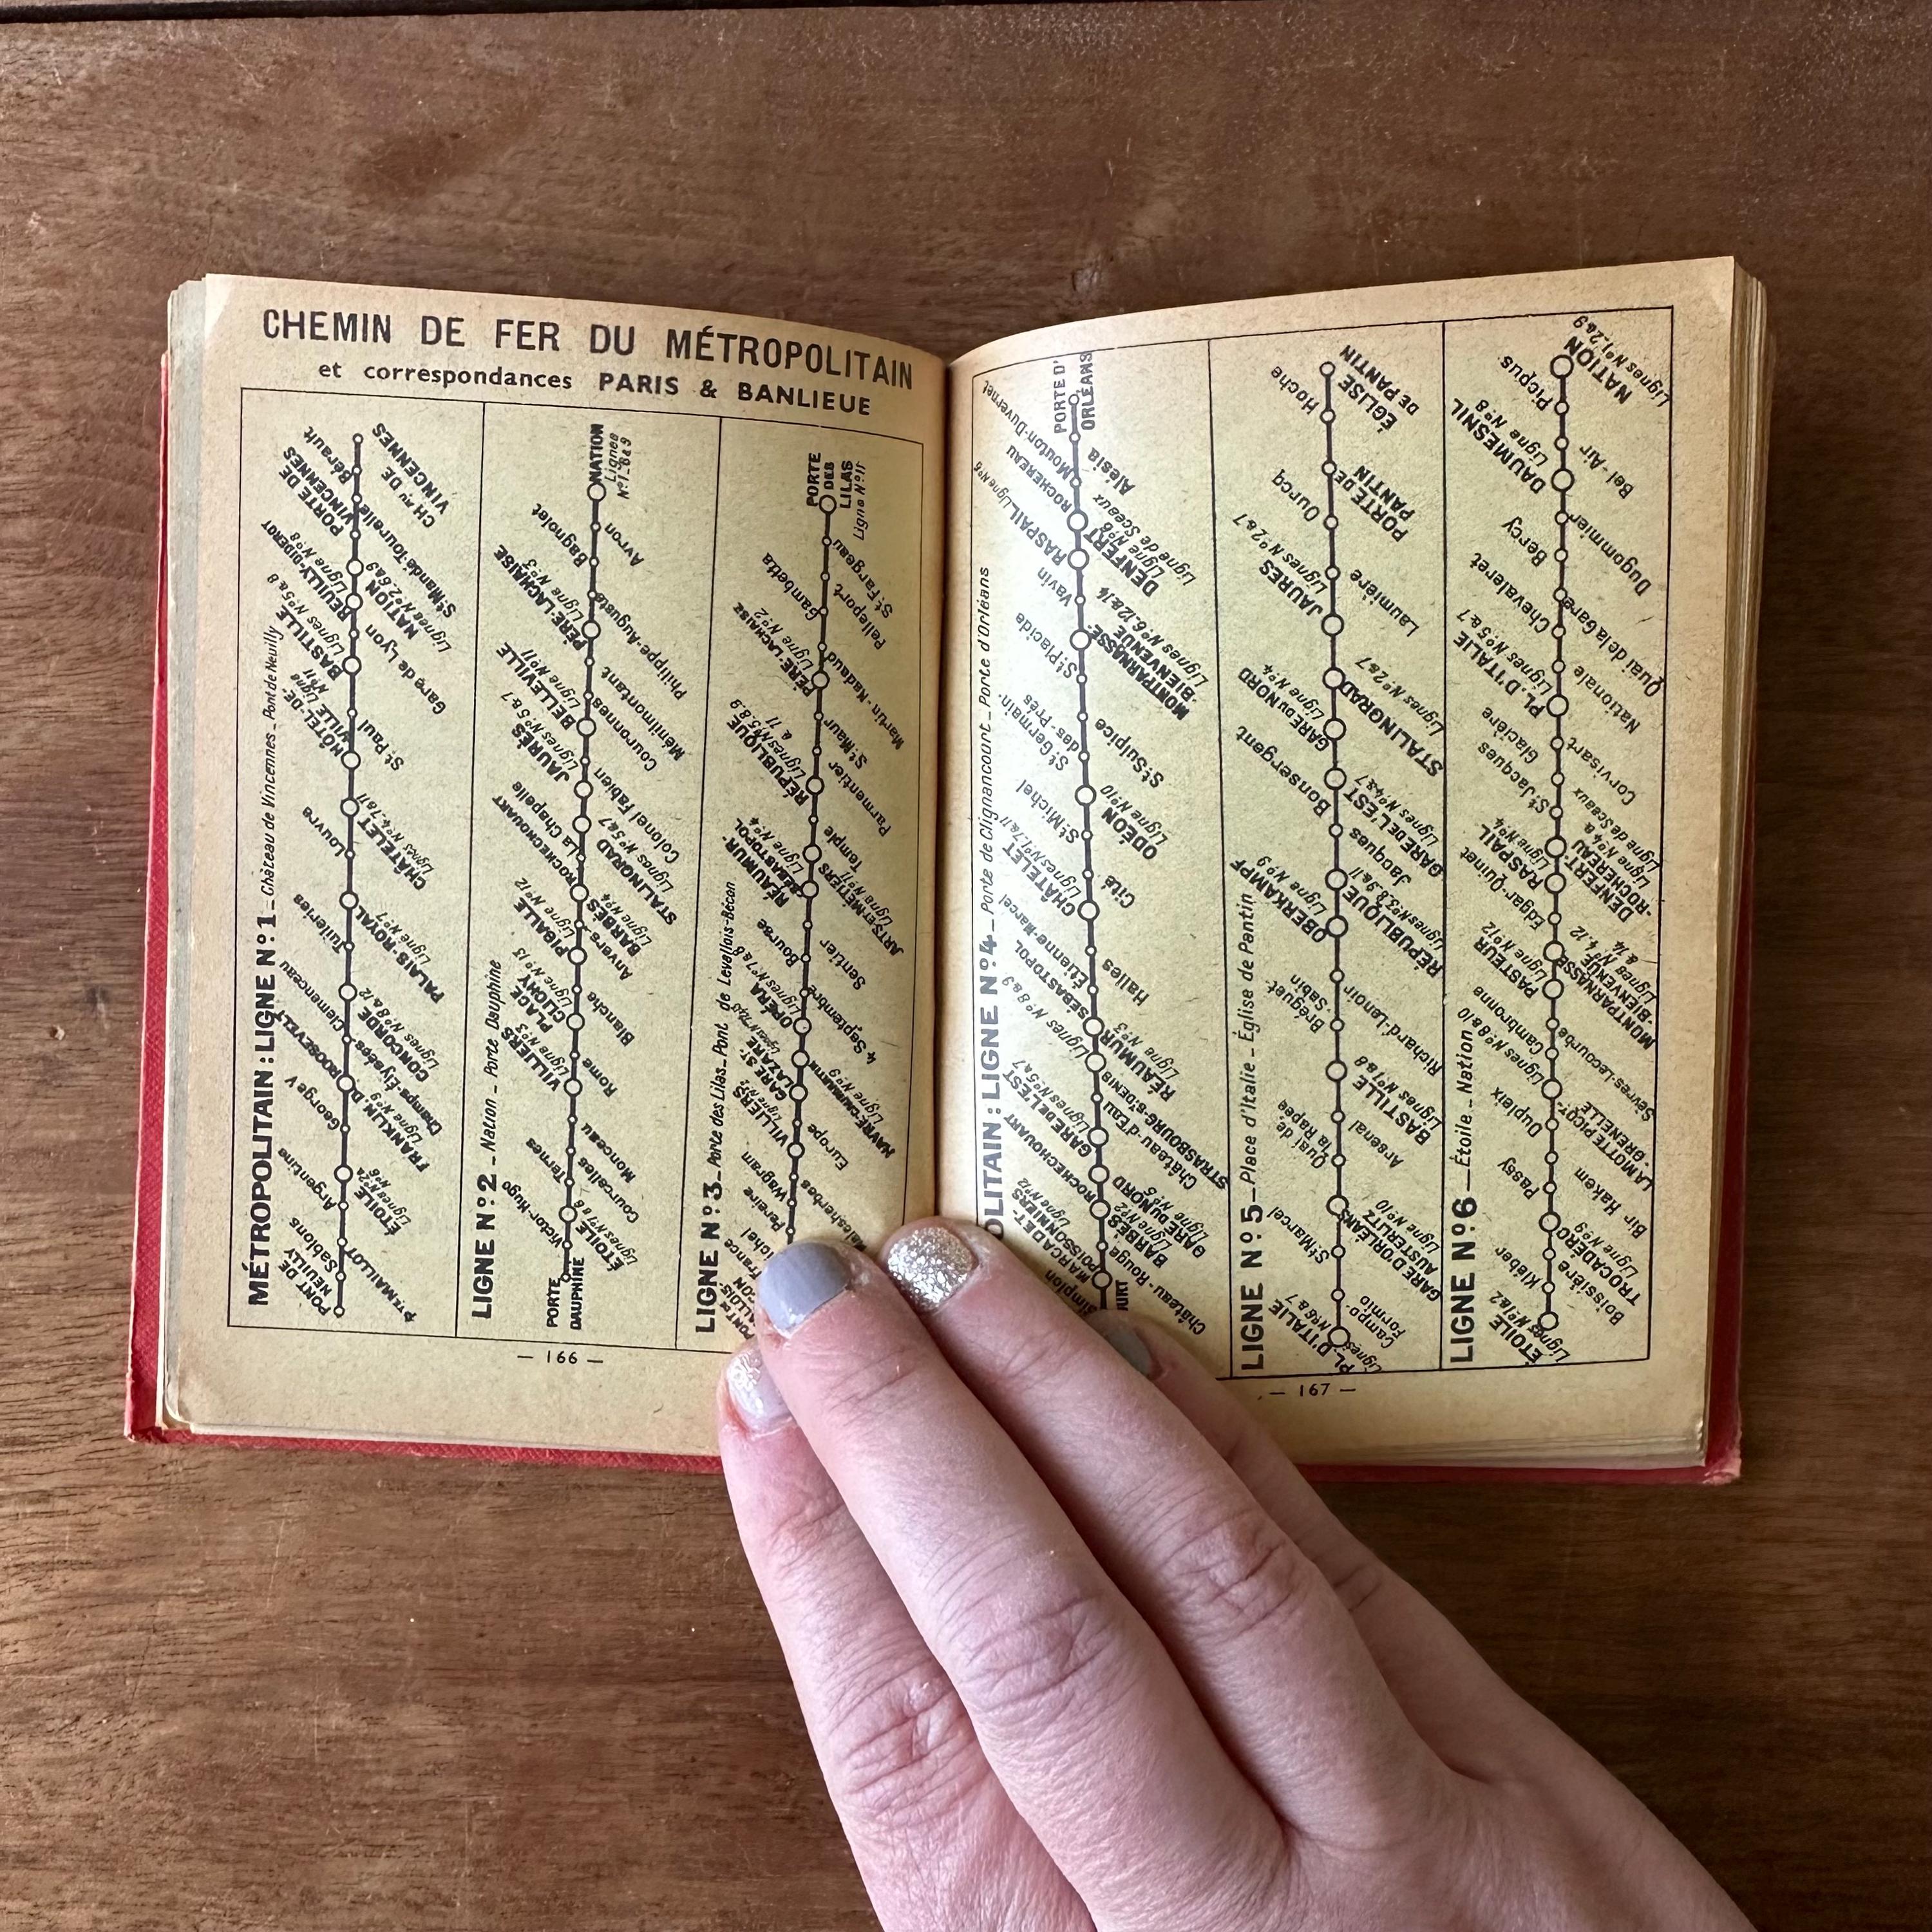 CHEMIN DE FER DU MÉTROPOLITAIN
et correspondances PARIS & BANLIEUE
MÉTROPOLITAIN : LIGNE Nº 1 _ Château de Vincennes _ Pont de Neuilly
PONT DE NEUILLY
Sablons
Pte MAILLOT
Argentine
ÉTOILE
Lignes Nos 2 & 6
George V
FRANKLIN. D. ROOSEVELT
Ligne Nº 9
Champs-Élysées
Clemenceau
CONCORDE
Lignes Nos 8 & 12
Tuileries
PALAIS-ROYAL
Ligne Nº 7
Louvre
CHÂTELET
Lignes Nos 4.7 & 11
HÔTEL-DE-VILLE
Ligne Nº 11
St Paul
BASTILLE
Lignes Nos 5 & 8
Gare de Lyon
REUILLY-DIDEROT
Ligne Nº 8
NATION
Lignes Nos 2.6 & 9
PORTE DE VINCENNES
St Mandé-Tourelle
Bérault
CHau DE VINCENNES
LIGNE Nº 2 _ Nation _ Porte Dauphine
PORTE DAUPHINE
Victor-Hugo
ÉTOILE
Lignes Nos 1 & 6
Ternes
Courcelles
Monceau
VILLIERS
Ligne Nº 3
Rome
PLACE CLICHY
Ligne Nº 13
Blanche
PIGALLE
Ligne Nº 12
Anvers
BARBÈS-ROCHECHOUART
Ligne Nº 4
La Chapelle
STALINGRAD
Lignes Nos 5 & 7
JAURÈS
Lignes Nos 5 & 7
Colonel Fabien
BELLEVILLE
Ligne Nº 11
Couronnes
Ménilmontant
PÈRE-LACHAISE
Ligne Nº 3
Philippe-Auguste
Bagnolet
Avron
NATION
Lignes
Nº 1_6 & 9
LIGNE Nº 3 _ Porte des Lilas _ Pont de Levallois-Bécon
Pereire
Wagram
Malesherbes
VILLIERS
Ligne Nº 2
Europe
GARE ST. LAZARE
HAVRE-CAUMARTIN
Ligne Nº 9
OPÉRA
Lignes Nos 7 & 8
4 Septembre
Bourse
Sentier
RÉAUMUR-SÉBASTOPOL
Ligne Nº 4
ARTS-ET-MÉTIERS
Ligne Nº 11
Temple
RÉPUBLIQUE
Lignes Nos 5.8.9 & 11
Parmentier
St Maur
PÈRE-LACHAISE
Ligne Nº 2
Martin-Nadaud
Gambetta
Pelleport
St Fargeau
PORTE DES LILAS
Ligne Nº 11
— 166 —
OLITAIN : LIGNE Nº 4 _ Porte de Clignancourt _ Porte d'Orléans
Simplon
MARCADET-POISSONNIERS
Ligne Nº 12
Château-Rouge
BARBÈS-ROCHECHOUART
Ligne Nº 2
GARE DU NORD
Ligne Nº 5
GARE DE L'EST
Lignes Nos 5 & 7
Château-d'Eau
STRASBOURG-St DENIS
Lignes Nos 8 & 9
RÉAUMUR-SÉBASTOPOL
Ligne Nº 3
Étienne-Marcel
Halles
CHÂTELET
Lignes Nos 1.7 & 11
Cité
St Michel
ODÉON
Ligne Nº 10
St Germain-des-Prés
St Sulpice
St Placide
MONTPARNASSE-BIENVENUE
Lignes Nos 6.12 & 14
Vavin
RASPAIL
Ligne Nº 6
DENFERT-ROCHEREAU
Ligne Nº 6
Ligne de Sceaux
Mouton-Duvernet
Alésia
PORTE D'ORLÉANS
LIGNE Nº 5 _ Place d'Italie _ Église de Pantin
PL. D'ITALIE
Lignes Nos 6 & 7
Campo-Formio
St Marcel
GARE D'ORLÉANS-AUSTERLITZ
Ligne Nº 10
Quai de la Rapée
Arsenal
BASTILLE
Lignes Nos 1 & 8
Bréguet-Sabin
Richard-Lenoir
OBERKAMPF
Ligne Nº 9
RÉPUBLIQUE
Lignes Nos 3.8.9 & 11
Jacques Bonsergent
GARE DE L'EST
Lignes Nos 4 & 7
GARE DU NORD
Ligne Nº 4
STALINGRAD
Lignes Nº 2 & 7
JAURÈS
Lignes Nos 2 & 7
Laumière
Ourcq
PORTE DE PANTIN
Hoche
ÉGLISE DE PANTIN
LIGNE Nº 6 _ Étoile _ Nation
ÉTOILE
Lignes Nos 1 & 2
Kléber
Boissière
TROCADÉRO
Ligne Nº 9
Passy
Bir Hakem
Dupleix
LA MOTTE PICQT-GRENELLE
Lignes Nos 8 & 10
Cambronne
Sèvres-Lecourbe
PASTEUR
Ligne Nº 12
MONTPARNASSE-BIENVENUE
Lignes Nos 4.12 & 14
Edgar-Quinet
RASPAIL
Ligne Nº 4
DENFERT-ROCHEREAU
Ligne Nº 4 &
Ligne de Sceaux
St Jacques
Glacière
Corvisart
PL. D'ITALIE
Lignes Nos 5 & 7
Nationale
Chevaleret
Quai de la Gare
Bercy
Dugommier
DAUMESNIL
Ligne Nº 8
Bel-Air
Picpus
NATION
Lignes Nos 1.2 & 9
— 167 —